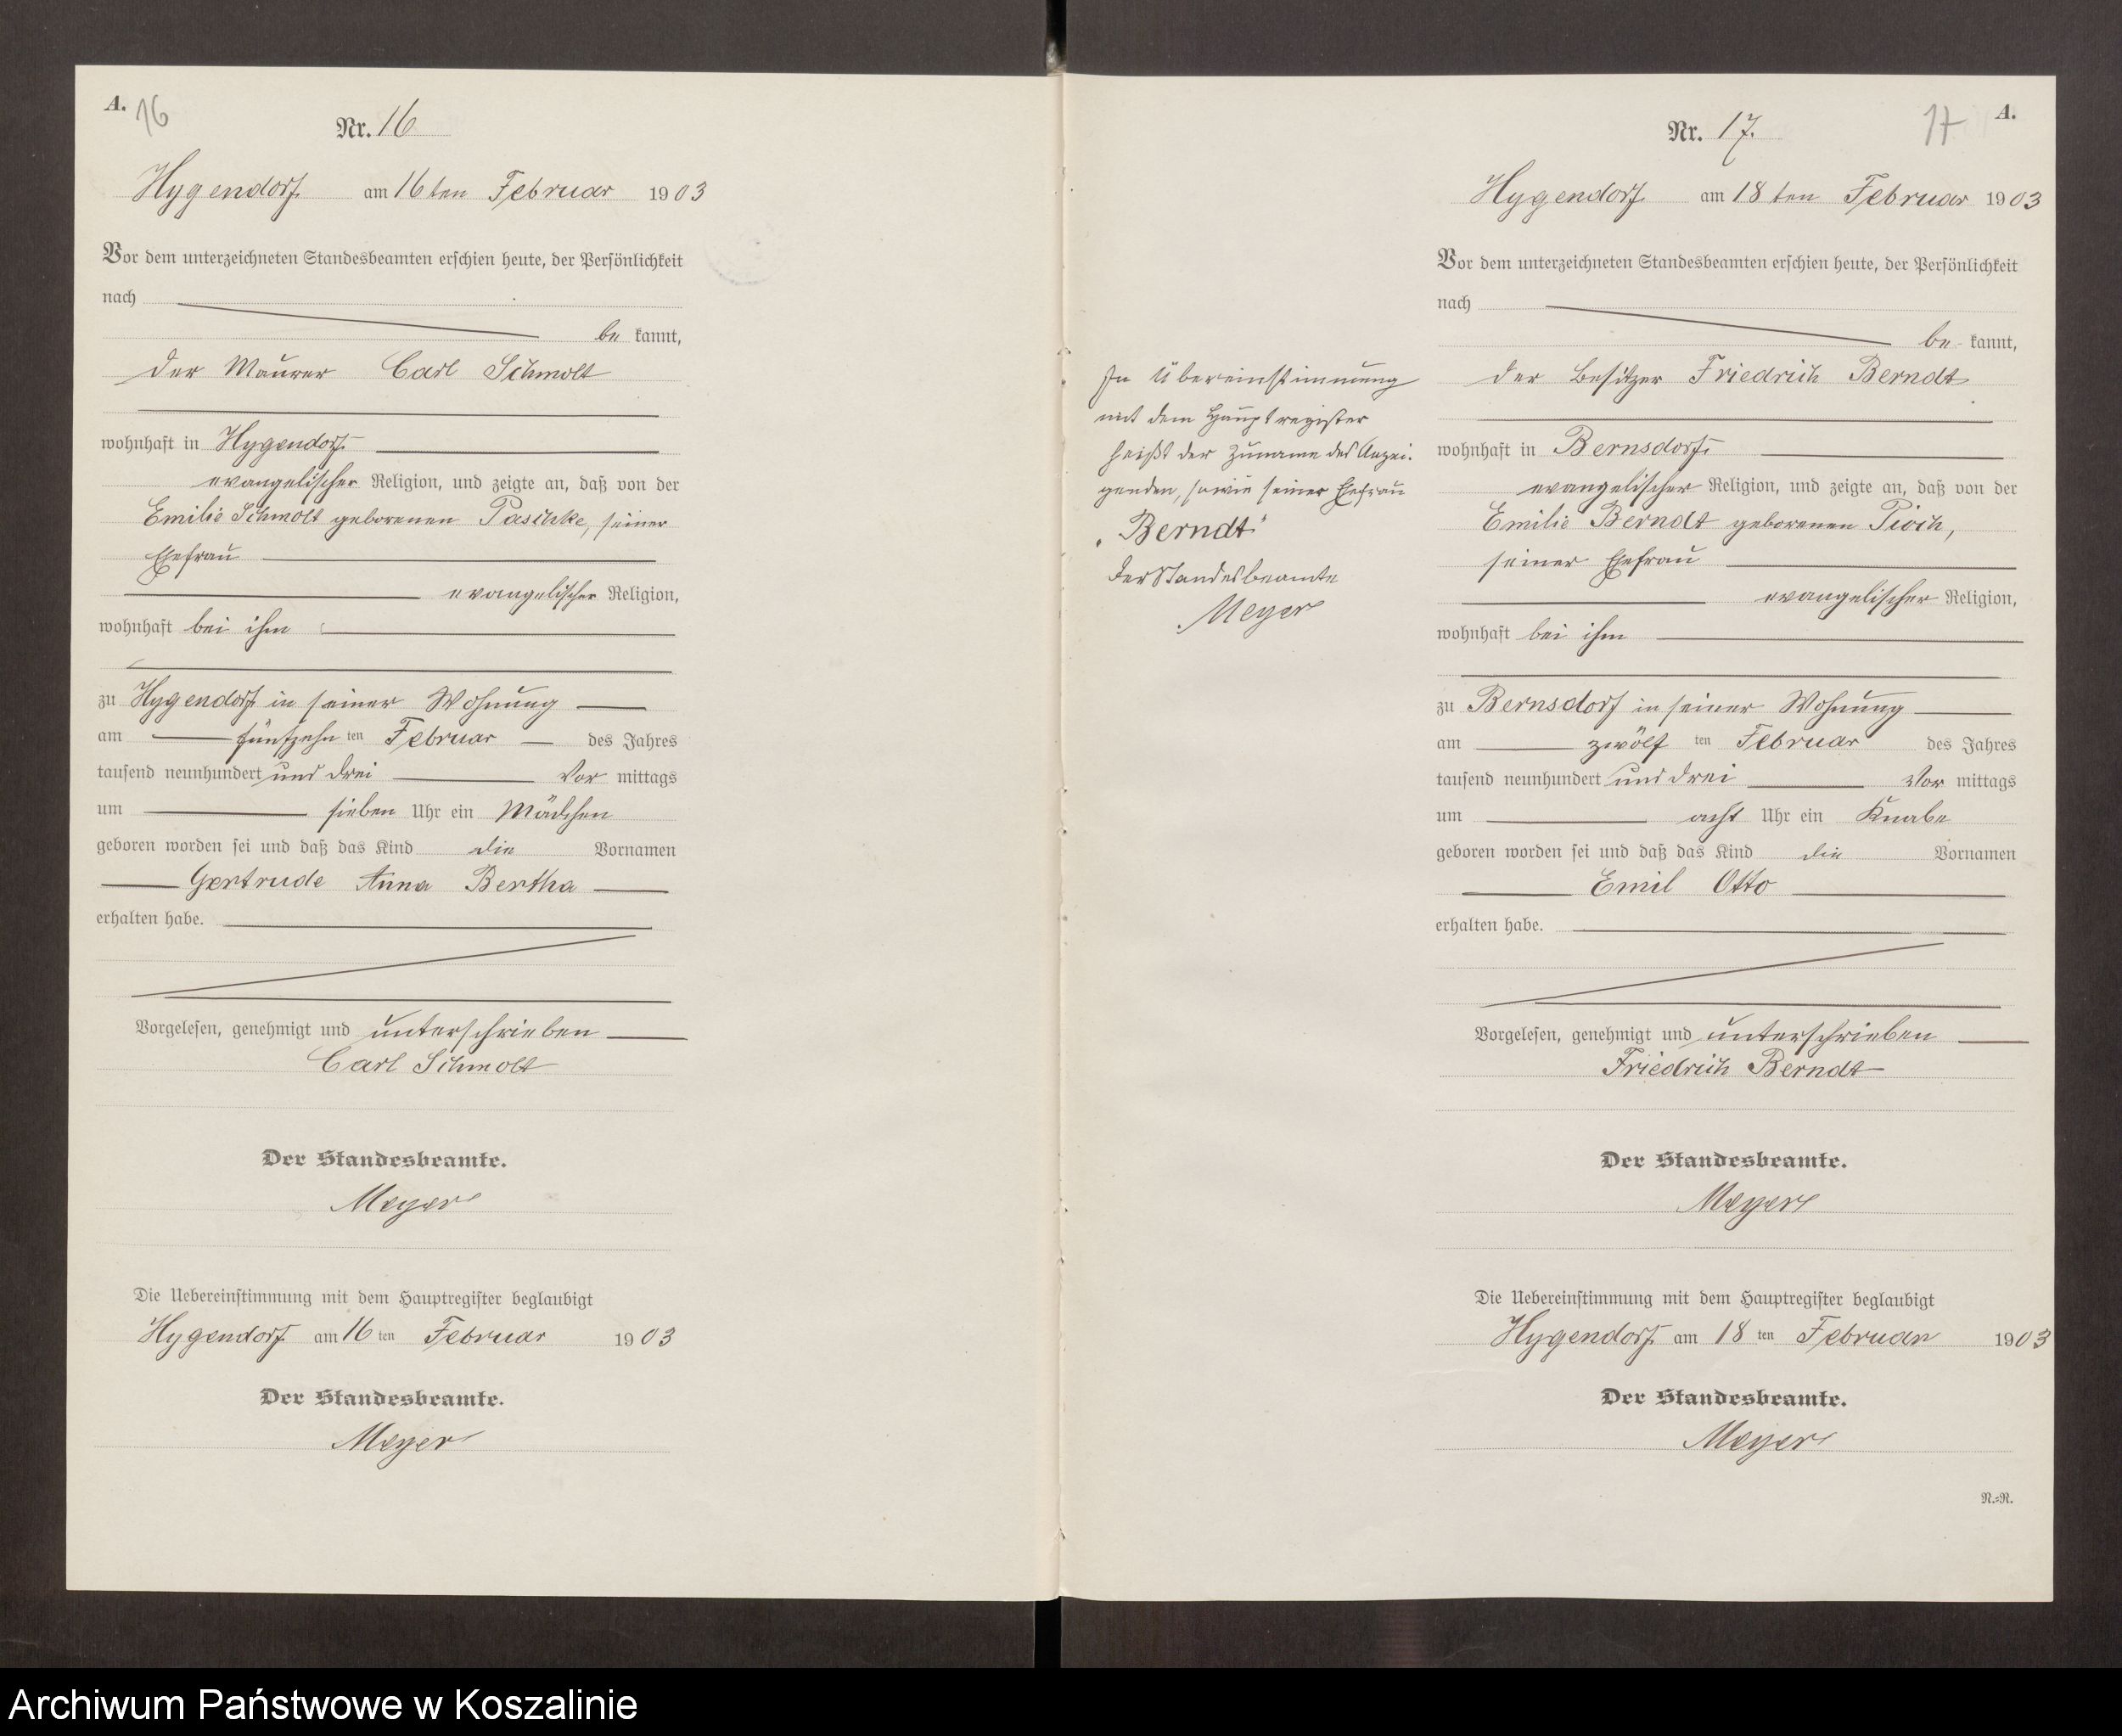 A.
16
Nr. 16
Hygendorf am 16ten Februar 1903
Vor dem unterzeichneten Standesbeamten erschien heute, der Persönlichkeit
nach
be kannt,
der Maurer Carl Schmolt
wohnhaft in Hygendorf
evangelischer Religion, und zeigte an, daß von der
Emilie Schmolt geborenen Paschke, seiner
Ehefrau
evangelischer Religion,
wohnhaft bei ihm
zu Hygendorf in seiner Wohnung
am fünfzehn ten Februar des Jahres
tausend neunhundert und drei Vor mittags
um sieben Uhr ein Mädchen
geboren worden sei und daß das Kind die Vornamen
Gertrude Anna Bertha
erhalten habe.
Vorgelesen, genehmigt und unterschrieben
Carl Schmolt
Der Standesbeamte.
Meyer
Die Uebereinstimmung mit dem Hauptregister beglaubigt
Hygendorf am 16 ten Februar 1903
Der Standesbeamte.
Meyer
In Übereinstimmung
mit dem Hauptregister
heißt der Zuname des Anzei-
genden, sowie seiner Ehefrau
"Berndt"
Der Standesbeamte
Meyer
A.
17
Nr. 17.
Hygendorf am 18 ten Februar 1903
Vor dem unterzeichneten Standesbeamten erschien heute, der Persönlichkeit
nach
be kannt,
der Besitzer Friedrich Berndt
wohnhaft in Bernsdorf
evangelischer Religion, und zeigte an, daß von der
Emilie Berndt geborenen Pioch,
seiner Ehefrau
evangelischer Religion,
wohnhaft bei ihm
zu Bernsdorf in seiner Wohnung
am zwölf ten Februar des Jahres
tausend neunhundert und drei Vor mittags
um acht Uhr ein Knabe
geboren worden sei und daß das Kind die Vornamen
Emil Otto
erhalten habe.
Vorgelesen, genehmigt und unterschrieben
Friedrich Berndt
Der Standesbeamte.
Meyer
Die Uebereinstimmung mit dem Hauptregister beglaubigt
Hygendorf am 18 ten Februar 1903
Der Standesbeamte.
Meyer
N.=R.
Archiwum Państwowe w Koszalinie